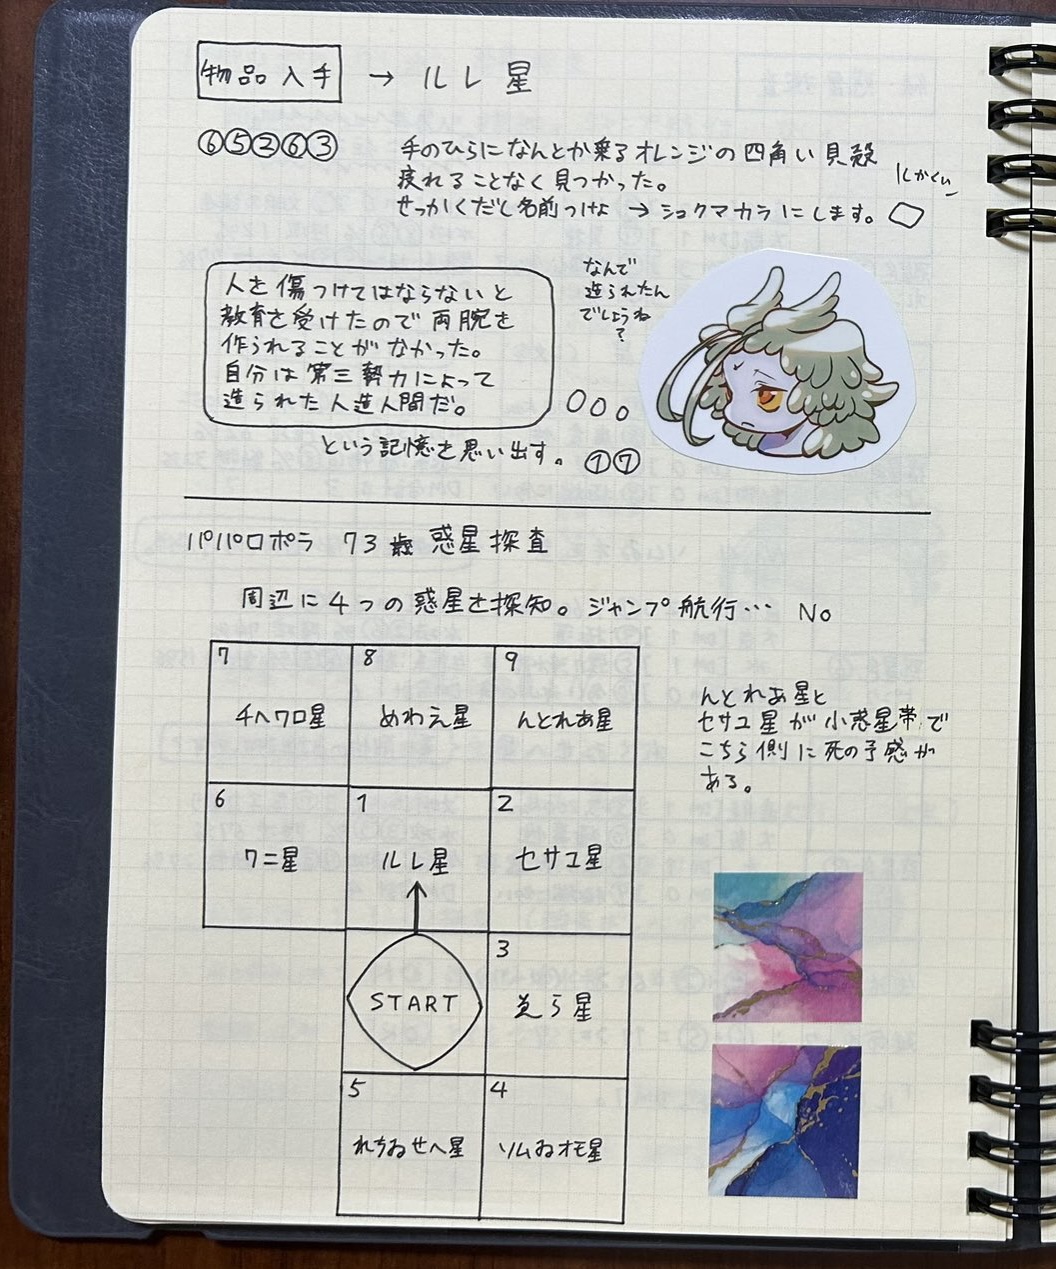 物品入手 → ルレ星
⑥⑤②⑥③
手のひらになんとか乗るオレンジの四角い貝殻
疲れることなく見つかった。
しかくい
せっかくだし名前つけよ → ショクマカラにします。
なんで
造られたん
でしょうね
?
人を傷つけてはならないと
教育を受けたので両腕を
作られることがなかった。
自分は第三勢力によって
造られた人造人間だ。
という記憶を思い出す。①⑦
パパロポラ 73歳 惑星探査
周辺に4つの惑星を探知。ジャンプ航行… No
7 8 9
チヘワロ星 めわえ星 んとれあ星
んとれあ星と
セサユ星が小惑星帯で
こちら側に死の予感が
ある。
6 1 2
ワニ星 ルレ星 セサユ星
3
START
ら星
5 4
れちゐせへ星 ソムゐオモ星